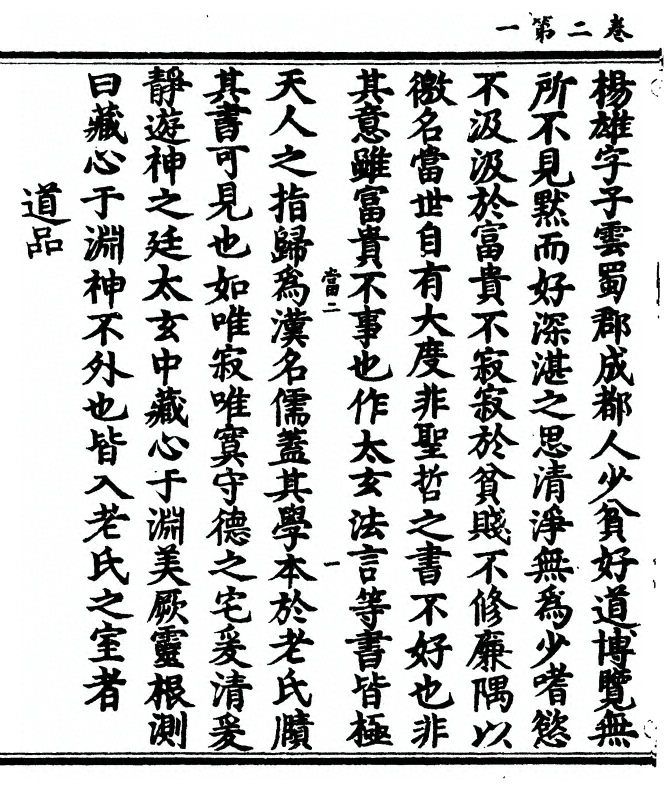 卷二第一
楊雄字子雲蜀郡成都人少貧好道博覽無
所不見默而好深湛之思清淨無為少嗜慾
不汲汲於富貴不寂寂於貧賤不修廉隅以
徼名當世自有大度非聖哲之書不好也非
其意雖富貴不事也作太玄法言等書皆極
當二
一
天人之指歸為漢名儒蓋其學本於老氏賾
其書可見也如唯寂唯寞守德之宅爰清爰
靜遊神之廷太玄中藏心于淵美厥靈根測
曰藏心于淵神不外也皆入老氏之室者
道品